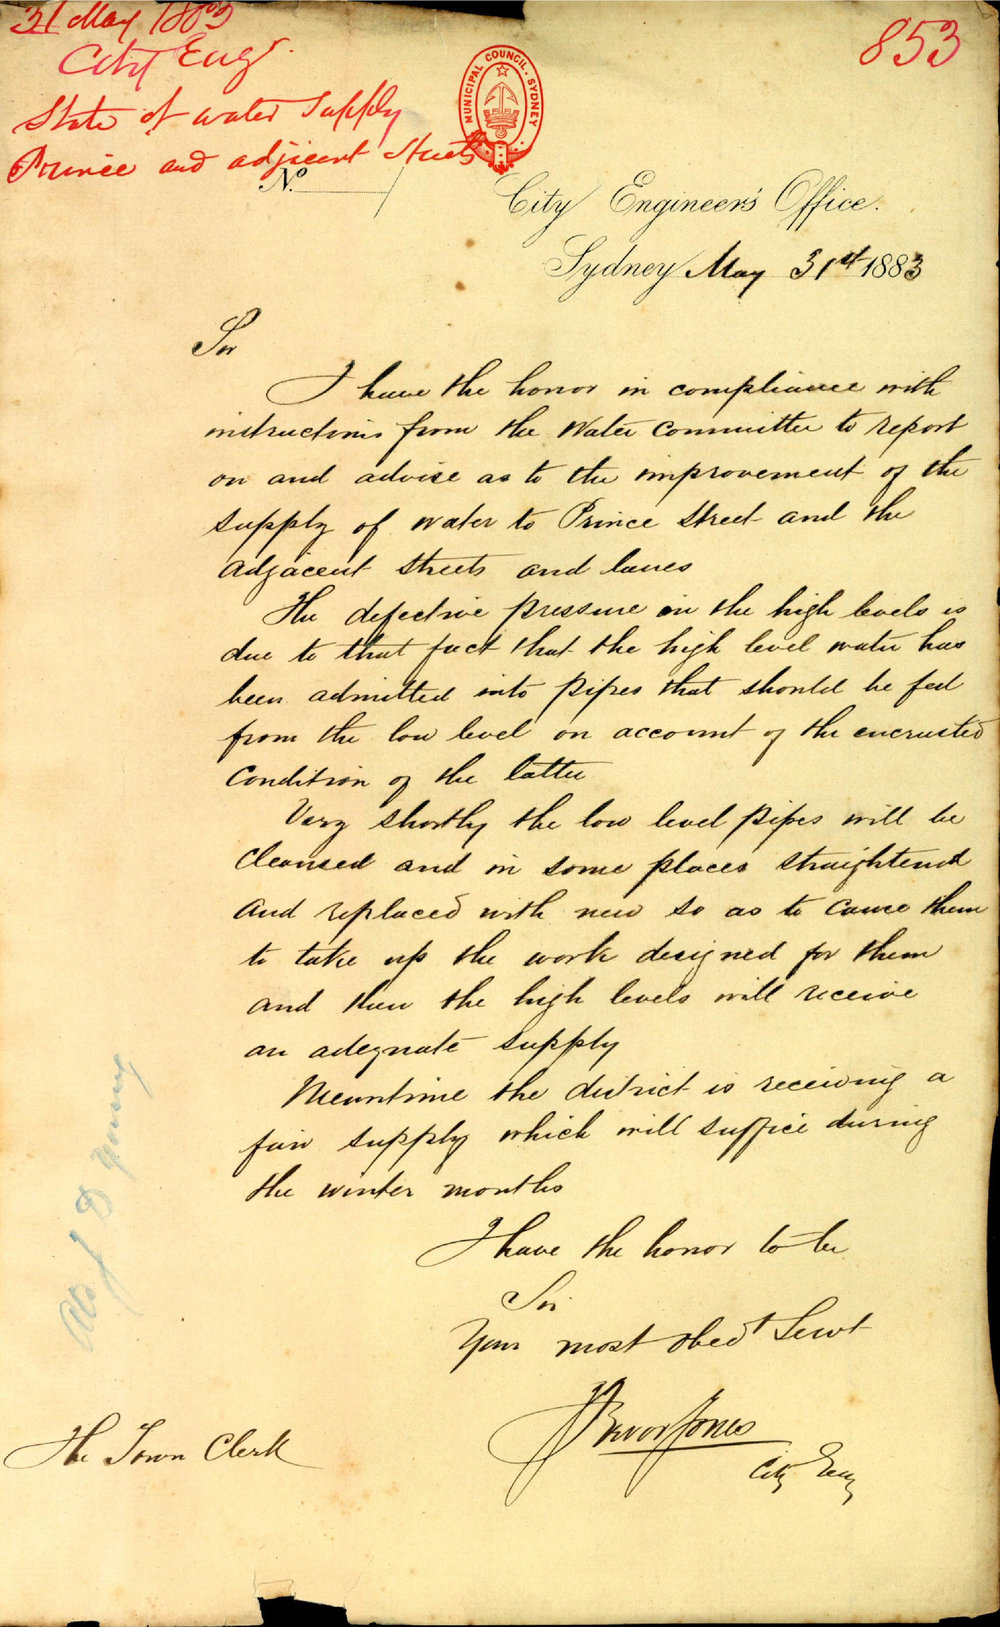 31 May 1883
City Engr.
State of water Supply
Prince and adjicent Streets
853
MUNICIPAL COUNCIL. SYDNEY
No
City Engineer's Office.
Sydney May 31st 1883
Sir
I have the honor in compliance with
instructions from the Water Committee to report
on and advise as to the improvement of the
supply of water to Prince Street and the
adjacent streets and lanes
The defective pressure in the high levels is
due to that fact that the high level water has
been admitted into pipes that should be fed
from the low level on account of the encrusted
condition of the latter
Very shortly the low level pipes will be
cleansed and in some places straightend
and replaced with new so as to cause them
to take up the work designed for them
and then the high levels will receive
an adequate supply
Meantime the district is receiving a
fair supply which will suffice during
the winter months
I have the honor to be
Sir
Your most obedt Servt
Trevor Jones
City Eng
The Town Clerk